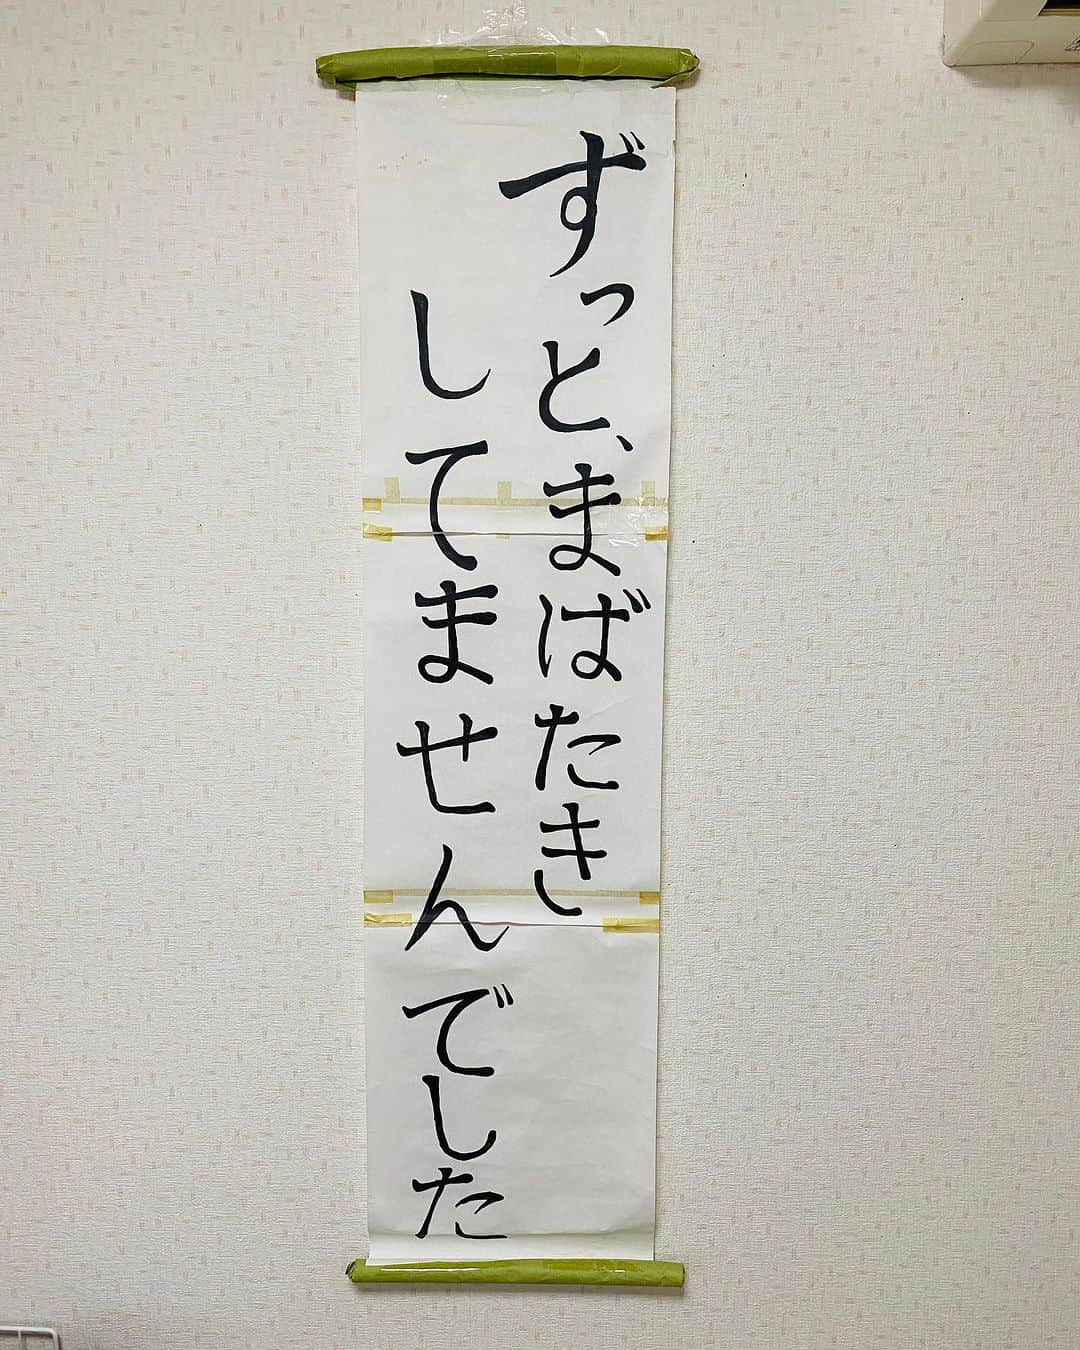 ずっと、まばたき
してませんでした